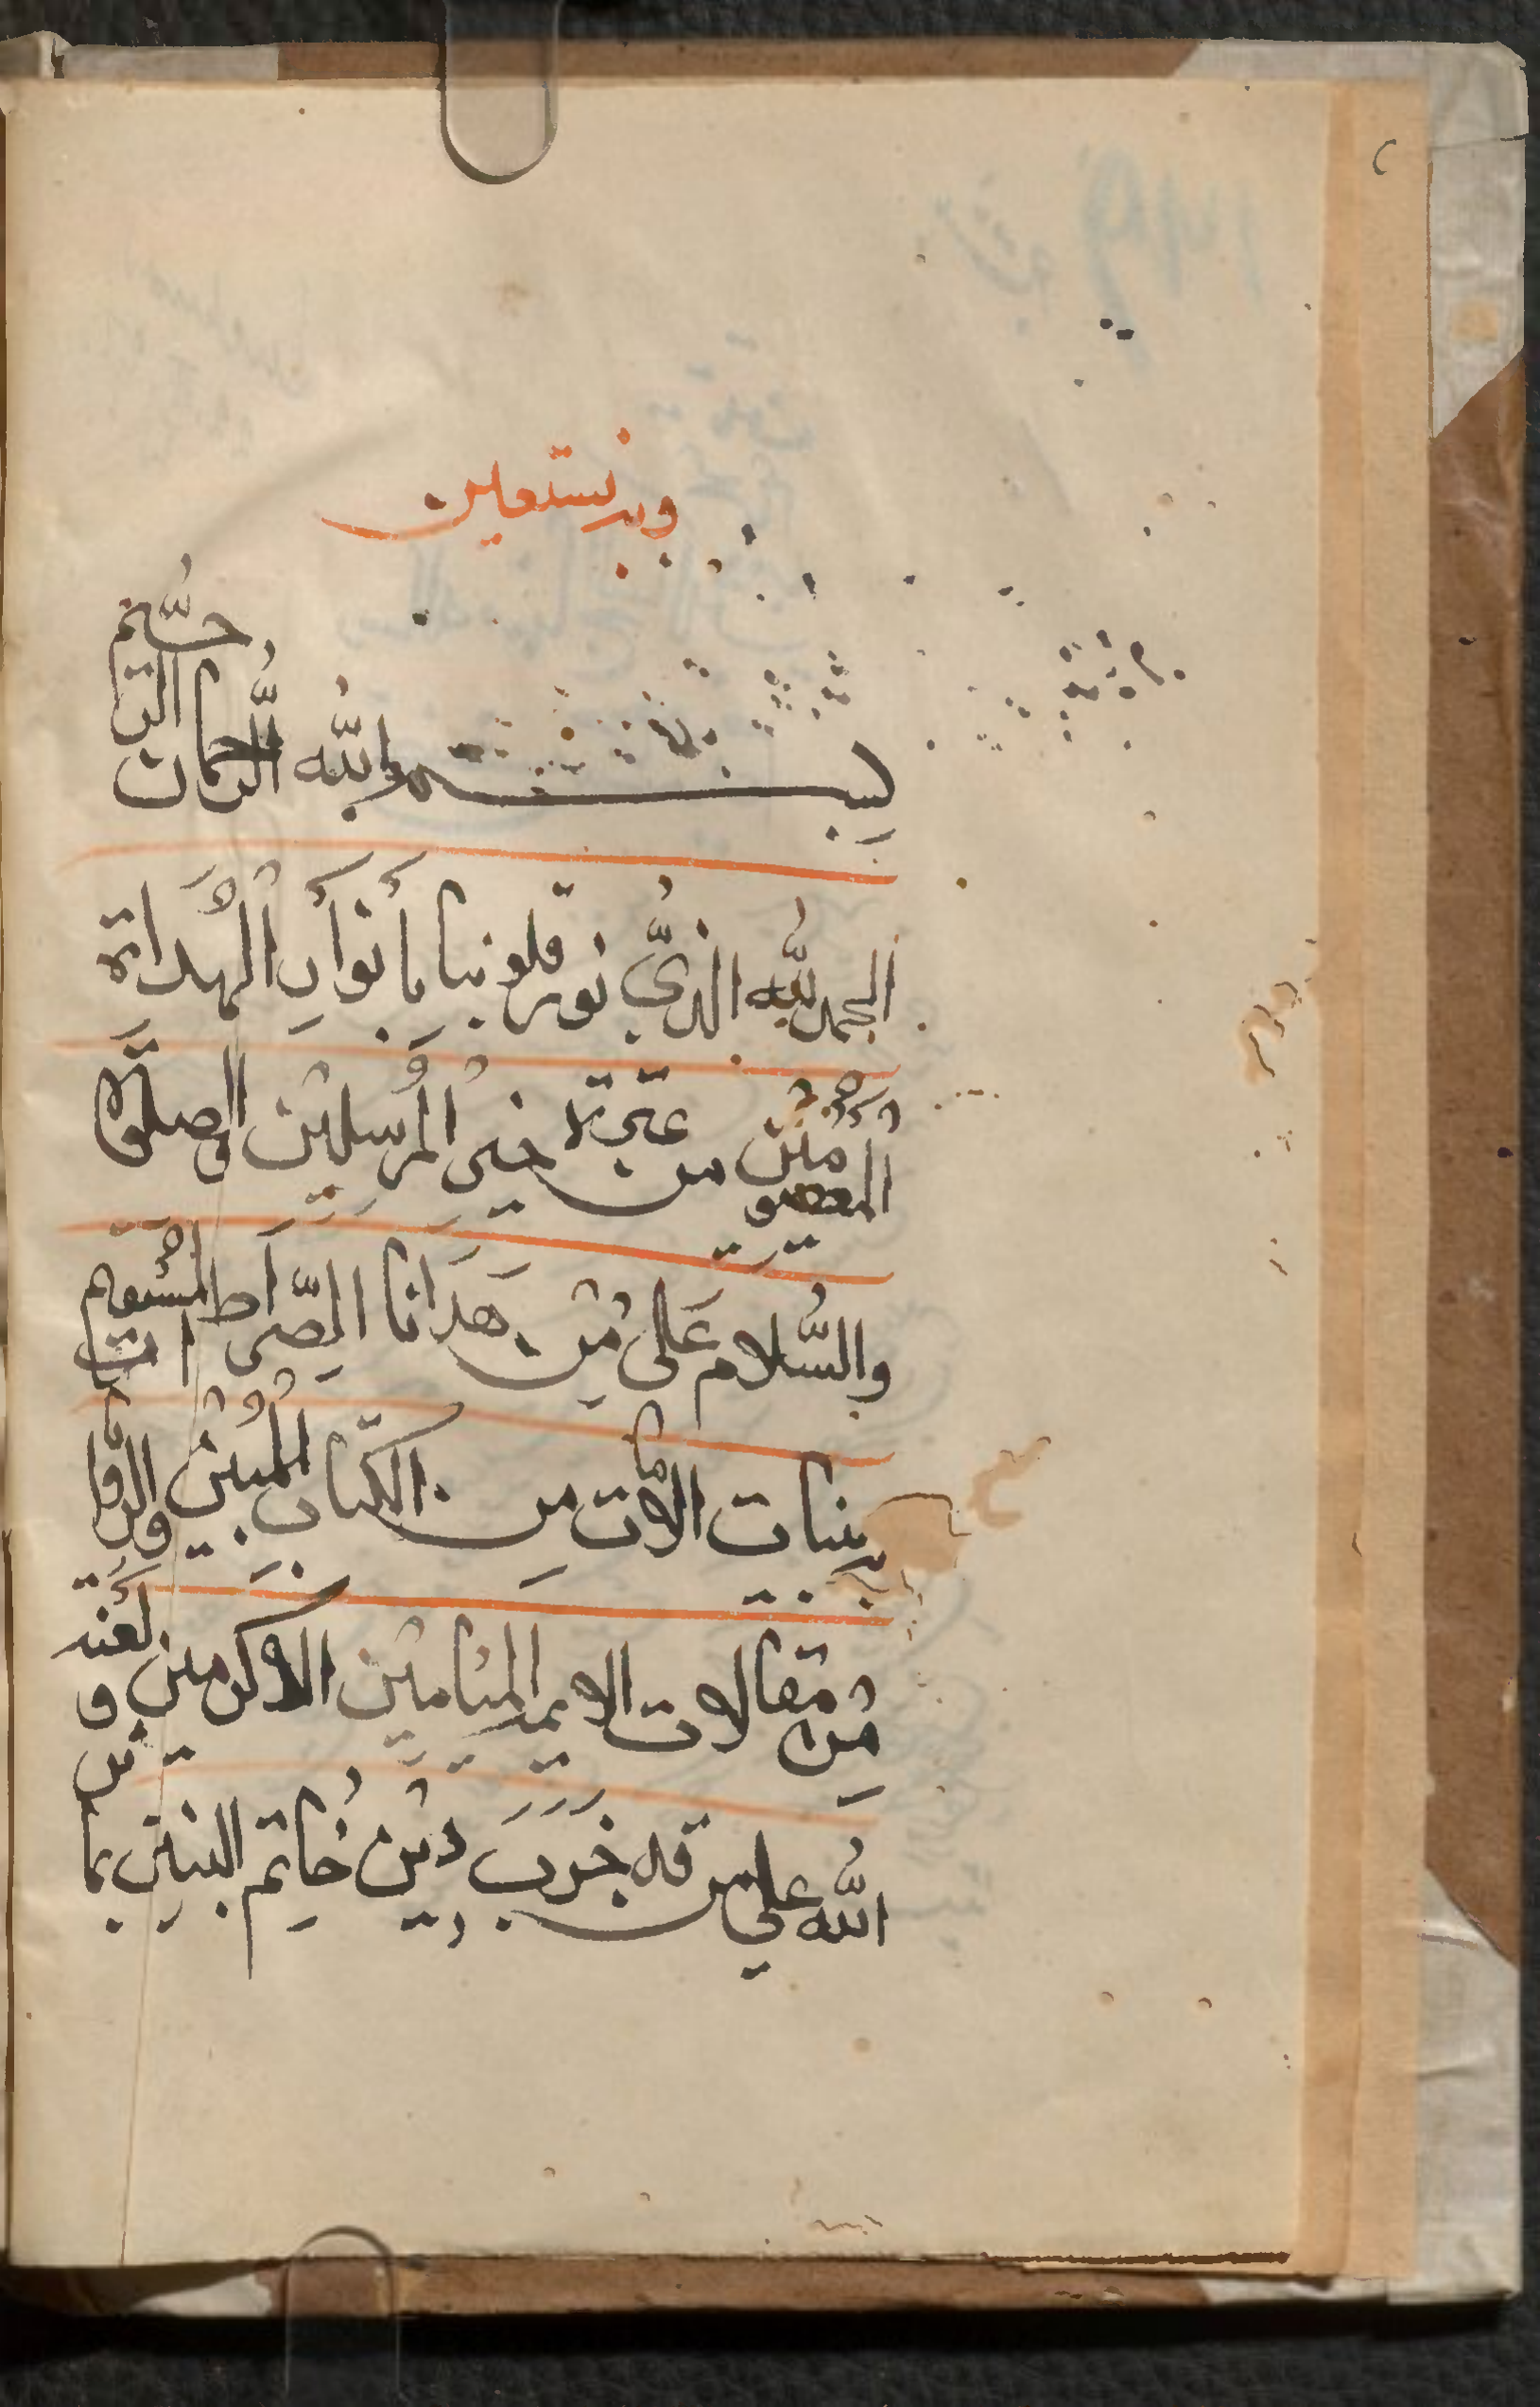 وبه نستعين
بسم الله الرحمان الرحيم
الحمد لله الذي نور قلوبنا بأنوار الهداة
المعصومين من عترة خير المرسلين والصلوة
والسلام على من هدانا الصراط المستقيم
ببينات الآيات من الكتاب المبين والروايات
من مقالات الايمة الميامين الاكرمين ولعنة
الله على من قد خرب دين خاتم النبيين بما